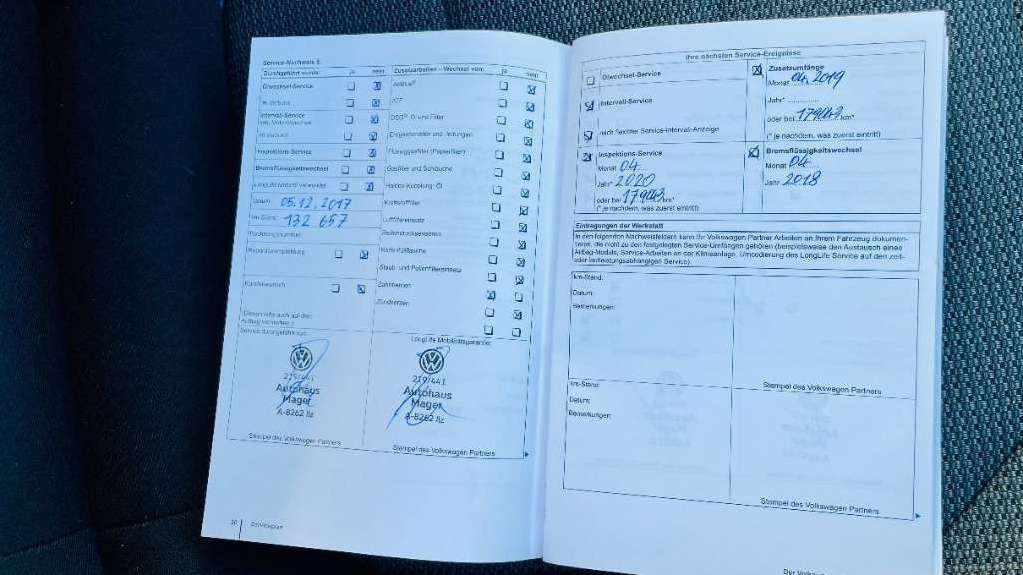 Service-Nachweis 5
Durchgeführt wurde: ja nein
Ölwechsel-Service
Intervall-Service
Inspektions-Service
Bremsflüssigkeitswechsel
Datum: 05.12.2017
km-Stand: 132 657
Kundenwunsch
Service durchgeführt von:
219/441
Autohaus
Mager
A-8262 Ilz
Stempel des Volkswagen Partners
30
Serviceplan
Zusatzarbeiten – Wechsel von: ja nein
AdBlue®
ATF
DSG®: Öl und Filter
Haldex-Kupplung: Öl
Kraftstofffilter
Luftfiltereinsatz
Staub- und Pollenfiltereinsatz
Zahnriemen
Zündkerzen
LongLife Mobilitätsgarantie:
219/441
Autohaus
Mager
A-8262 Ilz
Stempel des Volkswagen Partners
Ihre nächsten Service-Ereignisse
Ölwechsel-Service
Intervall-Service
nach flexibler Service-Intervall-Anzeige
Zusatzumfänge
Monat 04. 2019
Jahr*
oder bei 179043 km*
(* je nachdem, was zuerst eintritt)
Inspektions-Service
Monat 04
Jahr* 2020
oder bei 179043 km*
(* je nachdem, was zuerst eintritt)
Bremsflüssigkeitswechsel
Monat 04
Jahr 2018
Eintragungen der Werkstatt
In den folgenden Nachweisfeldern kann Ihr Volkswagen Partner Arbeiten an Ihrem Fahrzeug dokumen-
tieren, die nicht zu den festgelegten Service-Umfängen gehören (beispielsweise den Austausch eines
Airbag-Moduls, Service-Arbeiten an der Klimaanlage, Umcodierung des LongLife Service auf den zeit-
oder laufleistungsabhängigen Service).
km-Stand:
Datum:
Bemerkungen:
Stempel des Volkswagen Partners
km-Stand:
Datum:
Bemerkungen:
Stempel des Volkswagen Partners